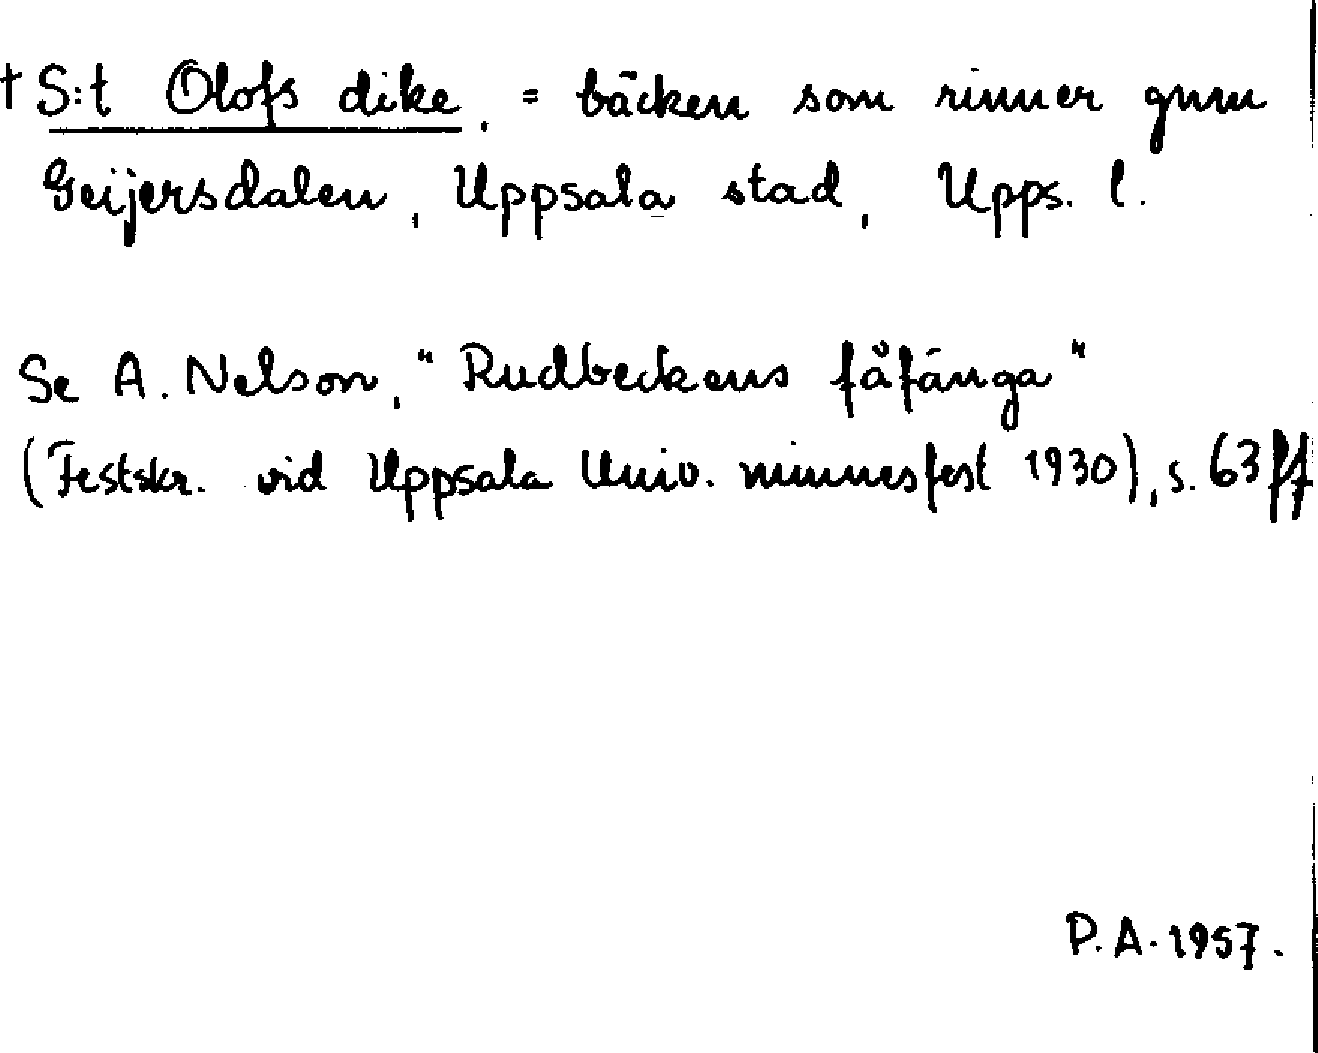 † S:t Olofs dike, = bäcken som rinner gnm
Geijersdalen, Uppsala stad, Upps. l.
Se A. Nelson, "Rudbeckens fåfänga"
(Festskr. vid Uppsala Univ. minnesfest 1930), s. 63 ff
P.A. 1957.